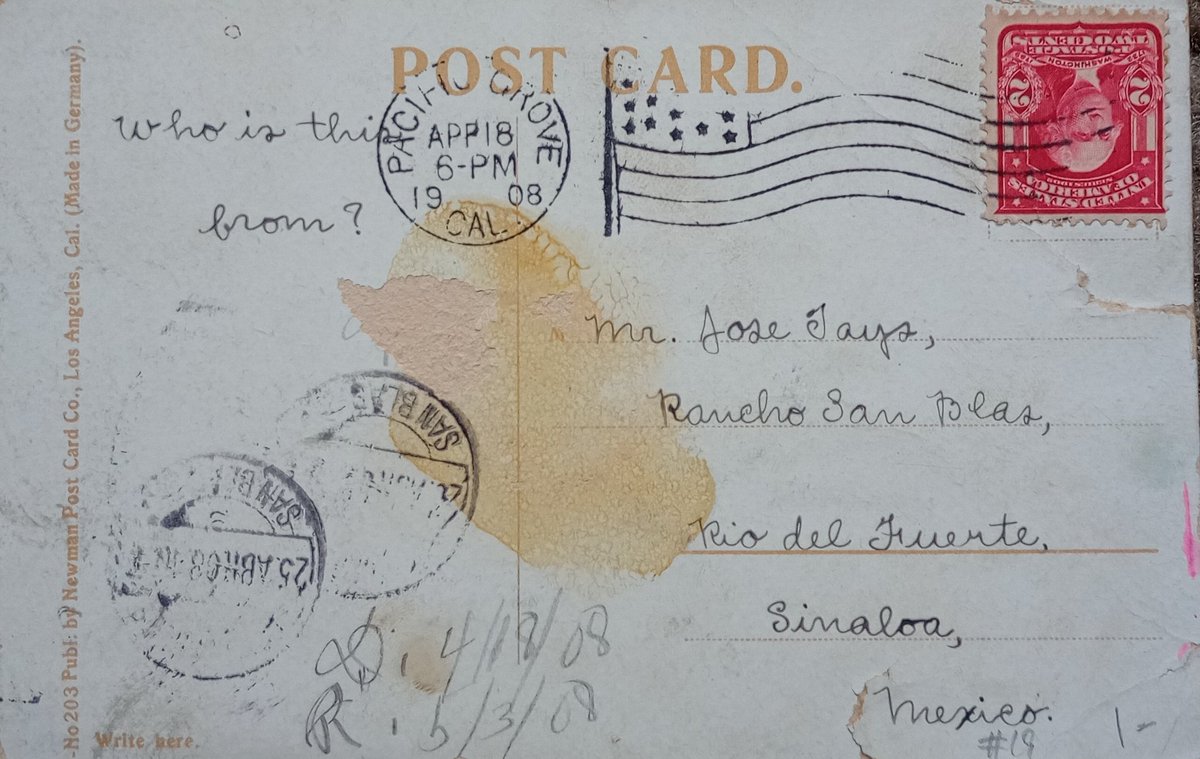 POST CARD.
PACIFIC GROVE
APR 18
6-PM
1908
CAL.
TWO CENTS
POSTAGE
WASHINGTON
2 2
UNITED STATES
OF AMERICA
Who is this
from?
Mr. Jose Tays,
Rancho San Blas,
Rio del Fuerte,
Sinaloa,
Mexico.
#19
1-
SAN BLAS
SAN BL
25 ABR 08
D. 4/18/08
R. 5/3/08
Write here.
-No 203 Publ. by Newman Post Card Co., Los Angeles, Cal. (Made in Germany).